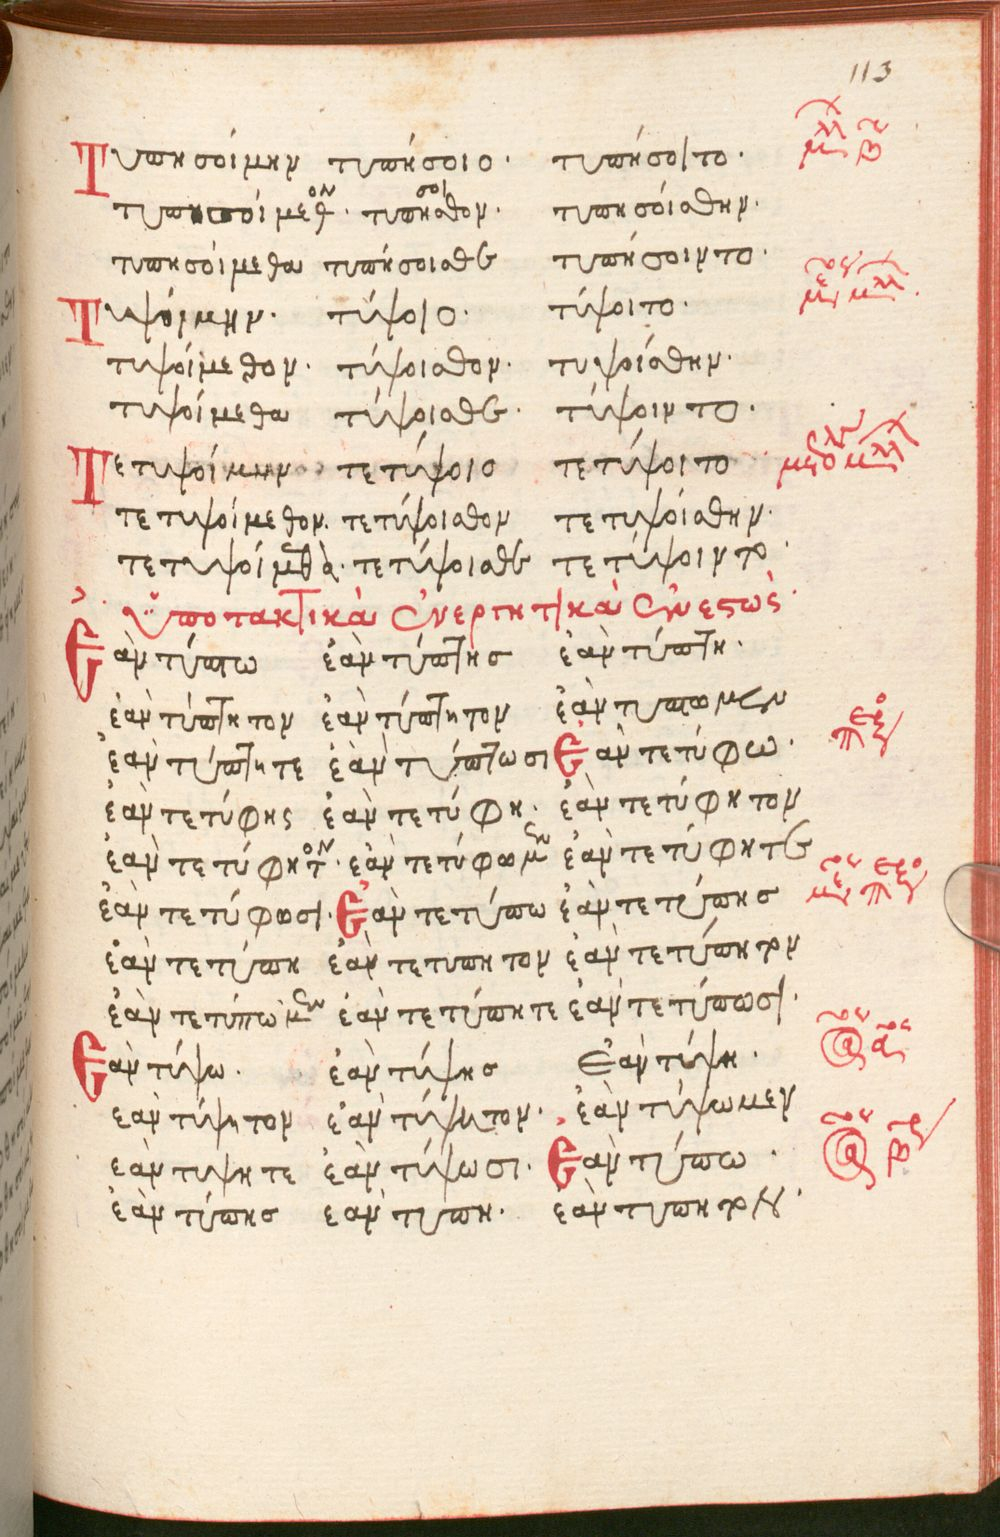 113
Τυπησοίμην τυπήσοιο· τυπήσοιτο·
τυπησοίμεθον· τυπήσοισθον· τυπησοίσθην·
τυπησόιμεθα τυπήσοισθε τυπήσοιντο·
Τυψόιμην· τύψοιο· τύψοιτο·
τυψοίμεθον· τύψοισθον· τυψοίσθην·
τυψοίμεθα τύψοισθε· τύψοιντο·
Τετυψοίμην τετύψοιο τετύψοιτο
τετυψοίμεθον. τετύψοισθον τετυψόισθην·
τετυψοίμεθα· τετύψοισθε τετύψοιντο·
Ὑποτακτικὰ ἐνεργητικὰ ἐνεστὼς·
Ἐὰν τύπτω ἐὰν τύπτης ἐὰν τύπτη·
ἐὰν τύπτητον ἐὰν τύπτητον ἐὰν τύπτωμεν
ἐὰν τύπτητε ἐὰν τύπτωσι Ἐὰν τετύφω·
ἐὰν τετύφης ἐὰν τετύφη· ἐὰν τετύφητον
ἐὰν τετύφητον· ἐὰν τετύφωμεν ἐὰν τετύφητε
ἐὰν τετύφωσι· Ἐὰν τετύπω ἐὰν τετύπης
ἐὰν τετύπη ἐὰν τετυπητον ἐὰν τετύπητον
ἐὰν τετύπωμεν ἐὰν τετύπητε ἐὰν τετύπωσι·
Ἐὰν τύψω· ἐὰν τύψης Ἐὰν τύψη·
ἐὰν τύψητον ἐὰν τύψητον· ἐὰν τύψωμεν
ἐὰν τυψητε ἐὰν τύψωσι· Ἐὰν τύπω·
ἐὰν τύπης ἐὰν τυπη· ἐὰν τυπητον·